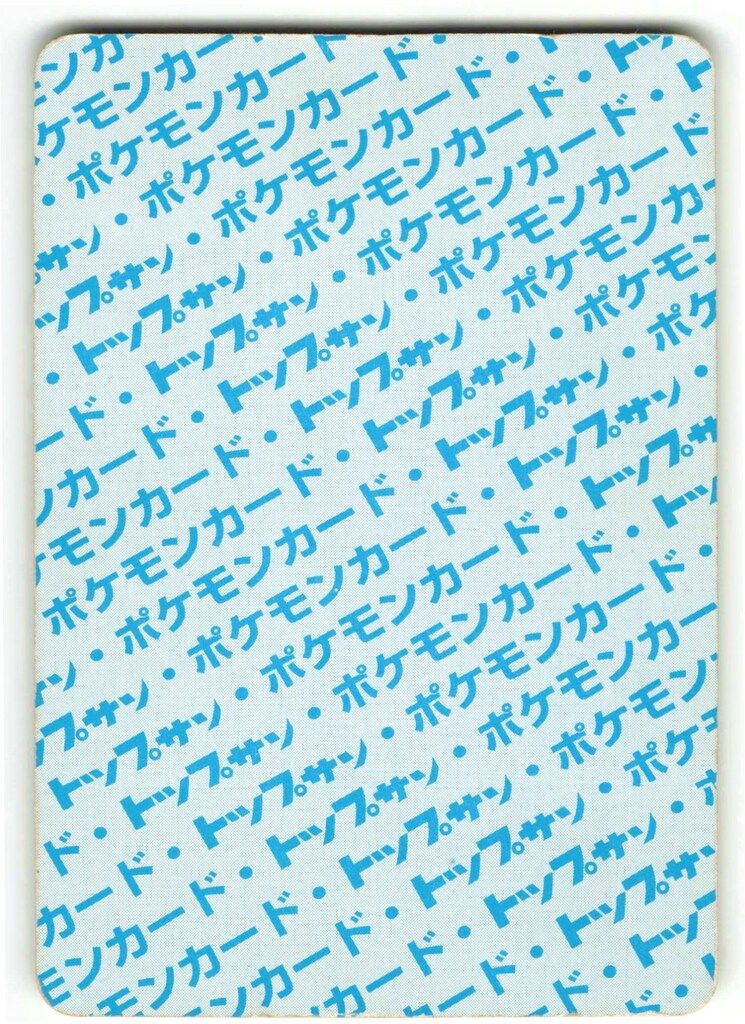 ンカ
ケモンカー
・ポケモンカード
サン・ポケモンカード・
ップサン・ポケモンカード・ト
・トップサン・ポケモンカード・ト
ード・トップサン・ポケモンカード・ト
ンカード・トップサン・ポケモンカード
ケモンカード・トップサン・ポケモンカー
ポケモンカード・トップサン・ポケモン
ン・ポケモンカード・トップサン・ポケ
プサン・ポケモンカード・トップサン・
トップサン・ポケモンカード・トップサ
ド・トップサン・ポケモンカード・トッ
カード・トップサン・ポケモンカード・
モンカード・トップサン・ポケモンカー
モンカード・トップサン・ポケモン
ンカード・トップサン・ポケ
カード・トップサン・ポ
ード・トップサ
ド・トッ